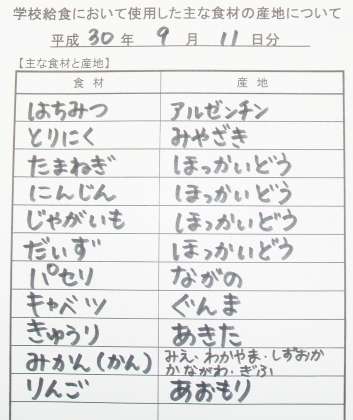 学校給食において使用した主な食材の産地について
平成 30 年 9 月 11 日分
【主な食材と産地】
食材 産地
はちみつ アルゼンチン
とりにく みやざき
たまねぎ ほっかいどう
にんじん ほっかいどう
じゃがいも ほっかいどう
だいず ほっかいどう
パセリ ながの
キャベツ ぐんま
きゅうり あきた
みかん(かん) みえ、わかやま・しずおか
かながわ・ぎふ
りんご あおもり